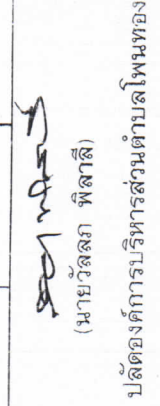 (นายวัลลภา พิลาลี)
ปลัดองค์การบริหารส่วนตำบลโพนทอง